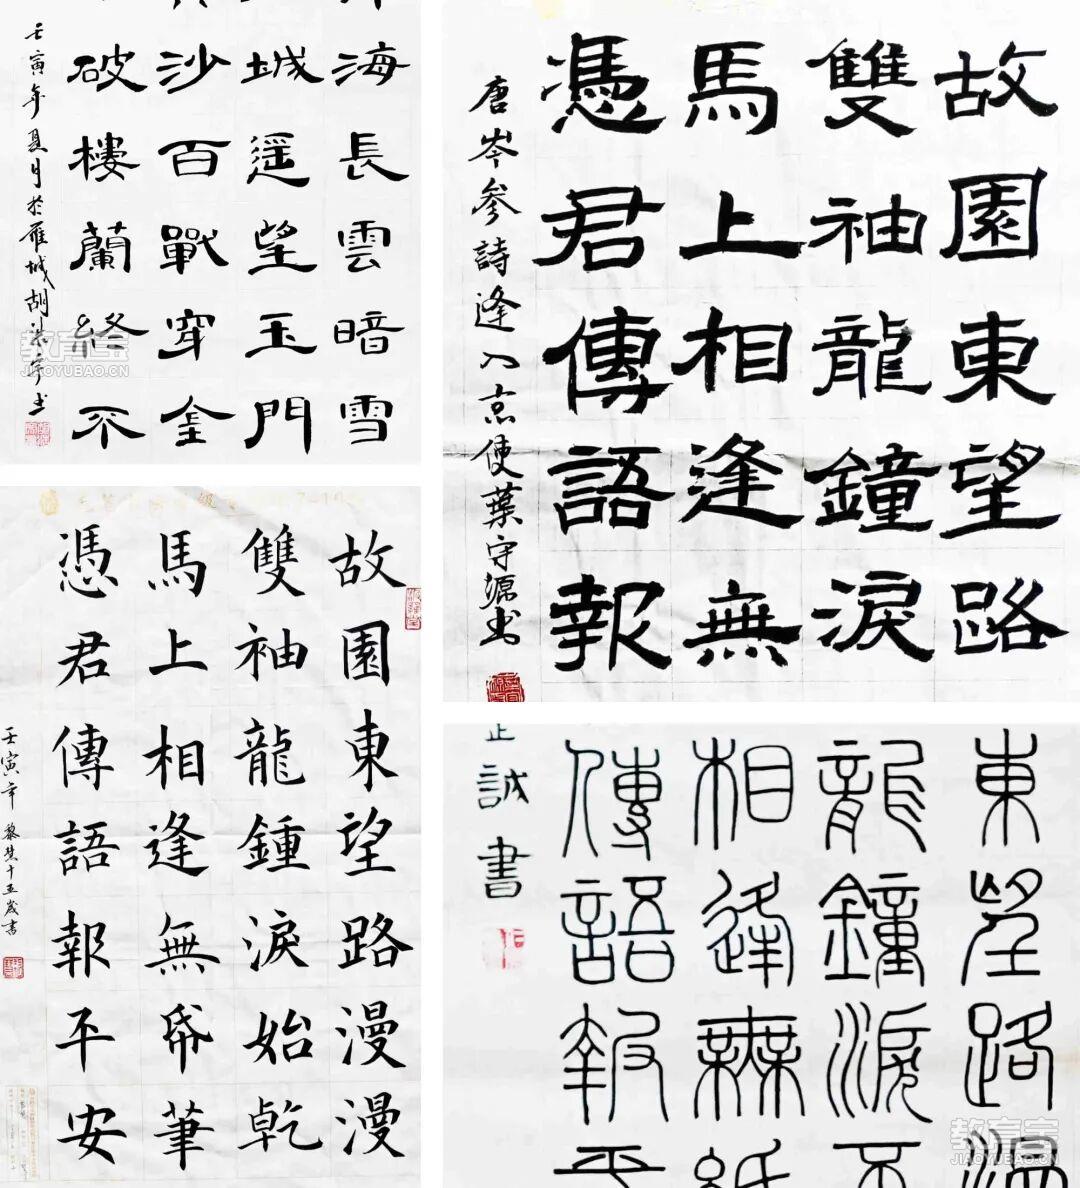 海長雲暗雪
城遥望玉門
沙百戰穿金
破樓蘭終不
壬寅年夏月於雁城胡书
教育宝
JIAOYUBAO.CN
故園東望路
雙袖龍鐘淚
馬上相逢無
憑君傳語報
唐岑參詩逢入京使葉守源书
故園東望路漫漫
雙袖龍鍾淚始乾
馬上相逢無帋筆
憑君傳語報平安
壬寅年 黎慧十五歲書
東望路漫
龍鐘淚不
相逢無紙
傳語報平
正誠書
教育宝
JIAOYUBAO.CN